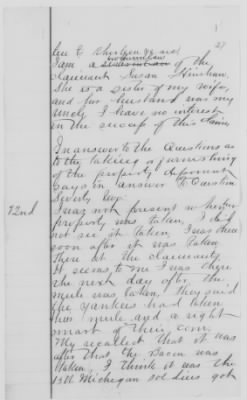 27
I am a of the
claimant Susan Hinshaw.
She is a sister of my wife,
and her husband was my
Uncle I have no interest
in the success of this claim,
In answer to the Questions as
to the taking or furnishing
of the property deponent
Says in answer to Question
72nd
I was not present when her
property was taken, I did
not see it taken, I was there
soon after it was taken
There at the claimants,
It seems to me I was there
the next day after the
mule was taken, they said
the yankees had taken
her mule and a right
smart of their corn.
My recollect that it was
after that the Bacon was
taken, I think it was the
13th Michigan soldiers got